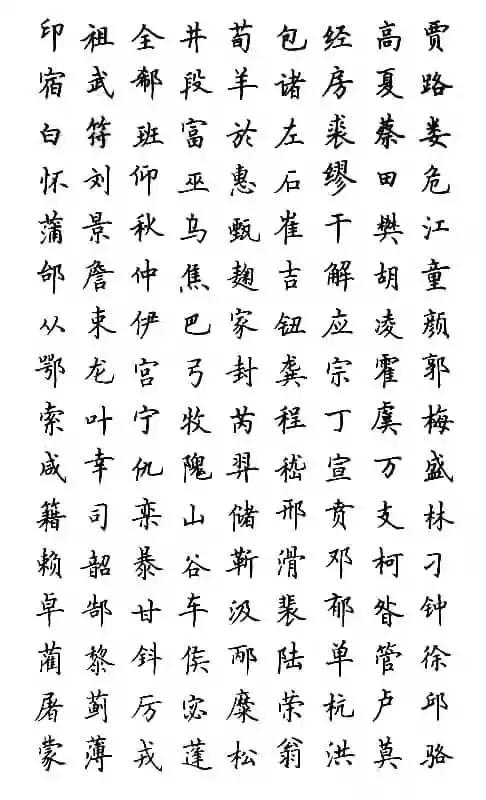 贾路娄危江童颜郭梅盛林刁钟徐邱骆
高夏蔡田樊胡凌霍虞万支柯昝管卢莫
经房裘缪干解应宗丁宣贲邓郁单杭洪
包诸左石崔吉钮龚程嵇邢滑裴陆荣翁
荀羊於惠甄麹家封芮羿储靳汲邴糜松
井段富巫乌焦巴弓牧隗山谷车侯宓蓬
全郗班仰秋仲伊宫宁仇栾暴甘钭厉戎
祖武符刘景詹束龙叶幸司韶郜黎蓟薄
印宿白怀蒲邰从鄂索咸籍赖卓蔺屠蒙